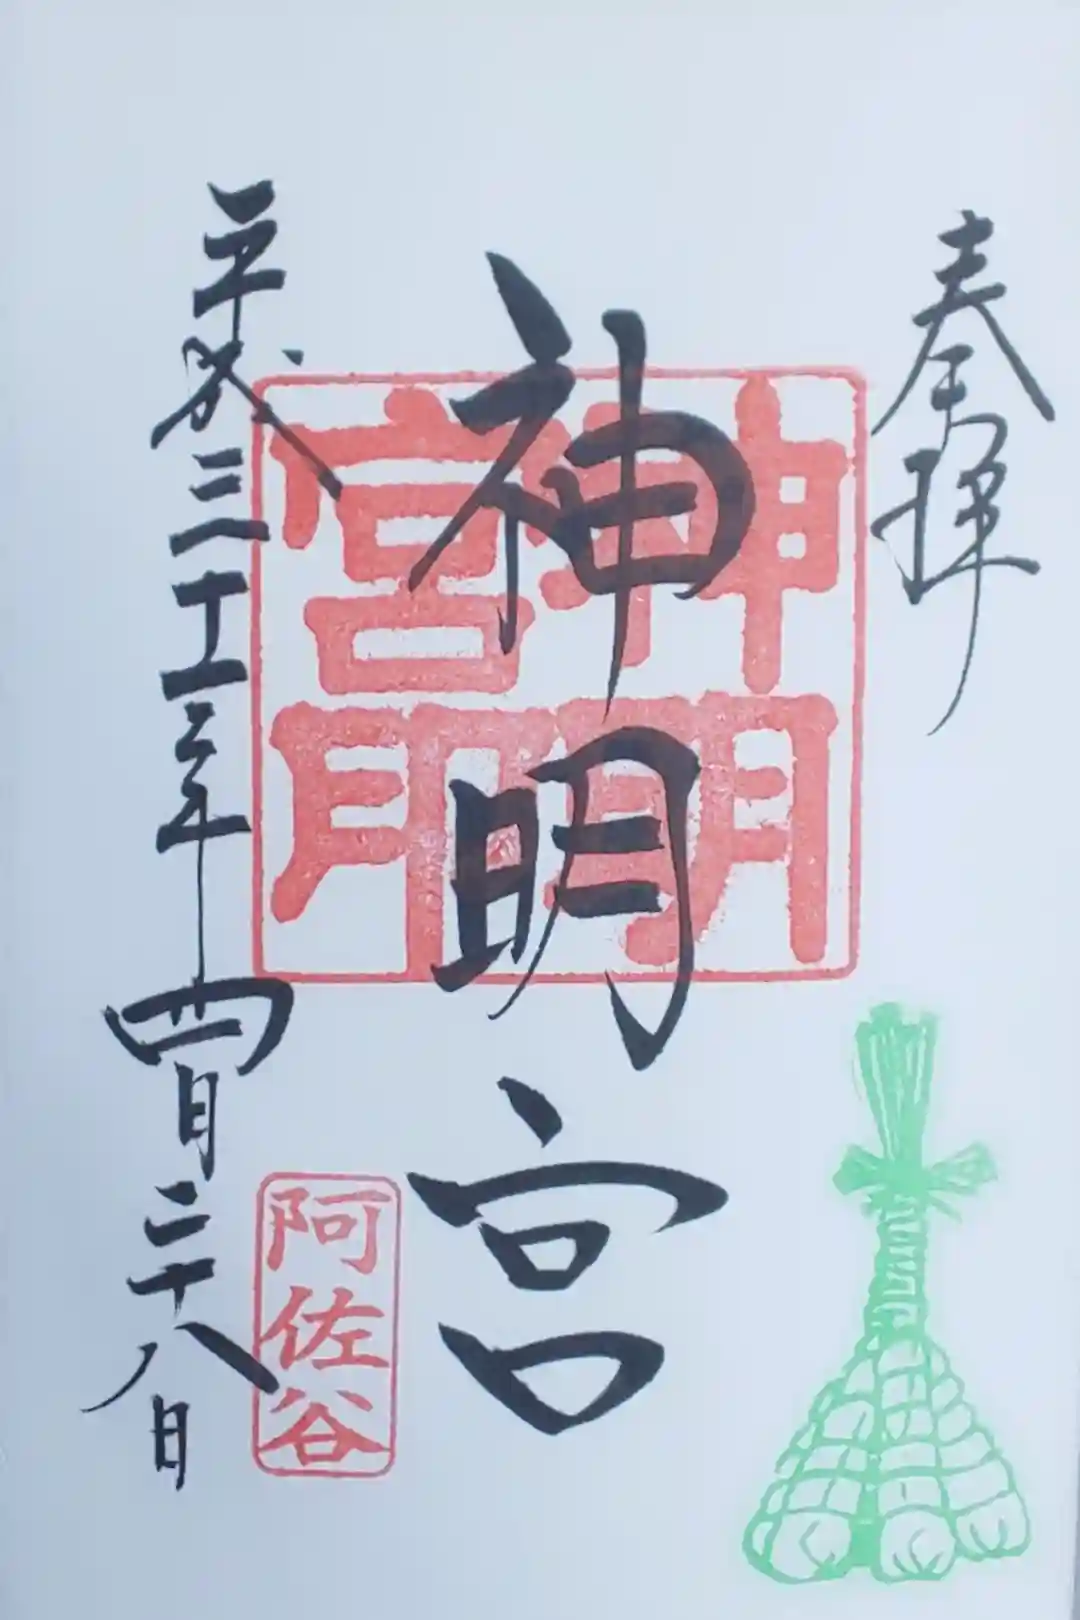 奉拝
神明宮
神明
宮印
平成三十一年四月二十八日
阿佐谷